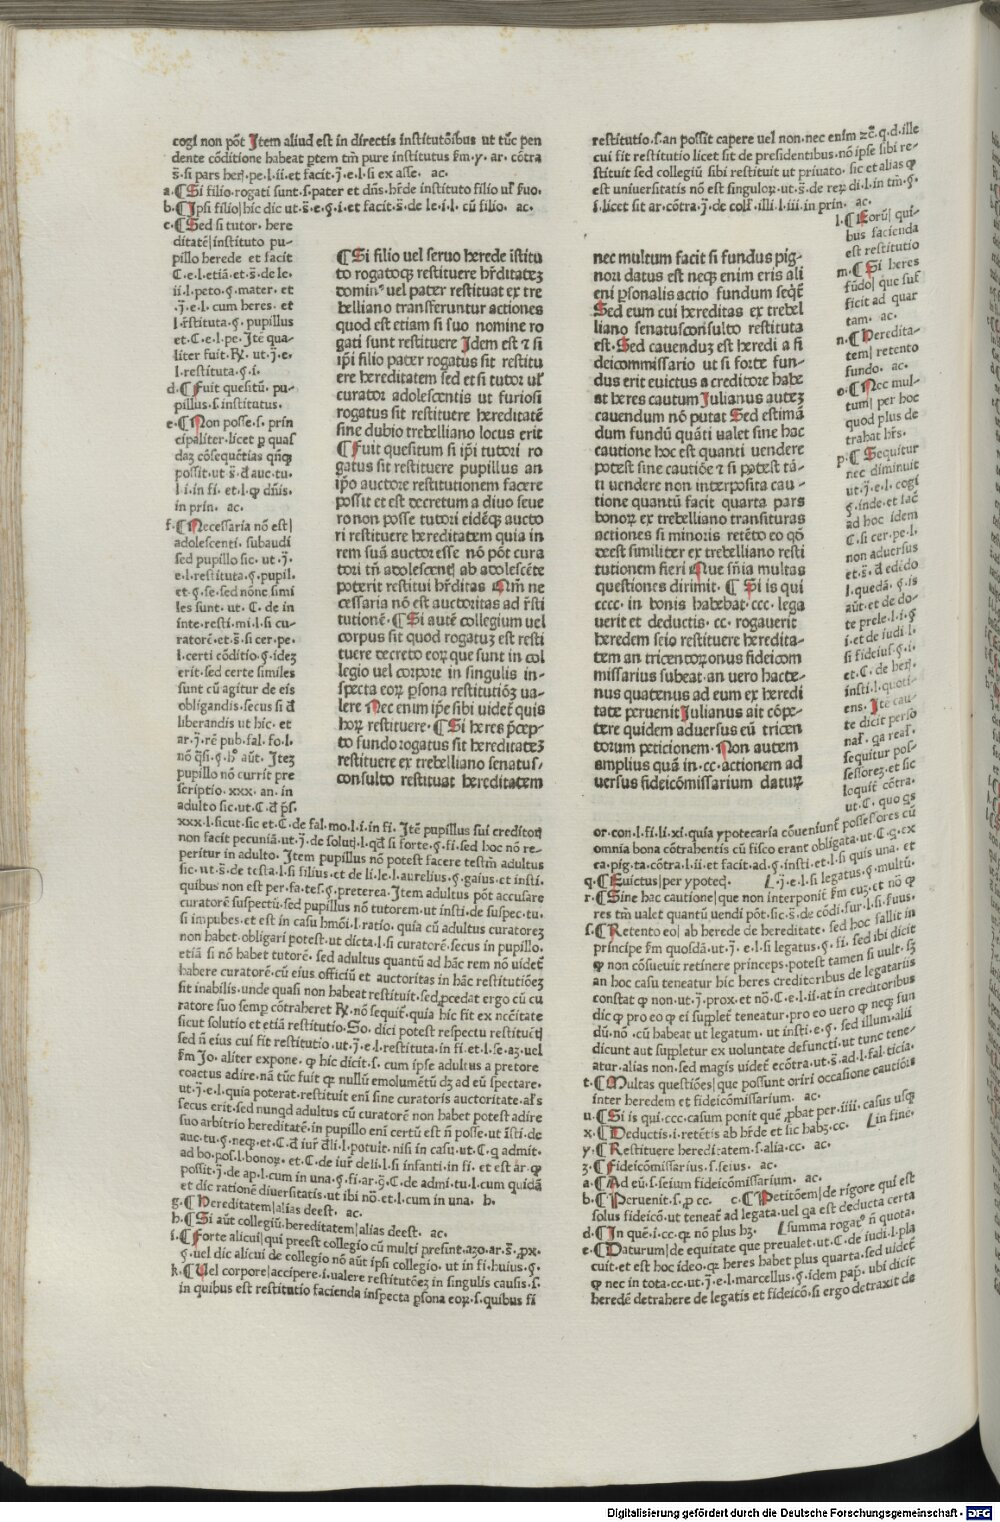 cogi non pōt Item aliud est in directis institutōibus ut tūc pen
dente cōditione habeat ptem tm̄ pure institutus
s̄.si pars her
a.¶Si filio.rogati sunt.s.pater et dn̄s.hr̄de instituto filio
b.¶Ipsi filio|hic dic ut.s̄.e.§.i.et facit.s̄.de le.i.l.cū filio. ac.
c.¶Sed si tutor. here
ditatē|instituto pu-
pillo herede et facit
C.e.l.etiā.et.s̄.de le.
ii.l.peto.§.mater.et
j̄.e.l.cum heres. et
l.r̄stituta.§. pupillus
et.C.e.l.pe.Itē qua-
liter fuit.
l.restituta.§.i.
d.¶Fuit quesitū. pu-
pillus.s.institutus.
e.¶Non posse.s.prin
cipaliter.licet
possit.ut
l i.in fi. et.l.
in prin. ac.
f.¶Necessaria nō est|
adolescenti. subaudi
sed pupillo sic. ut.j̄.
e.l.restituta.§.pupil.
et.§.se.sed nōne simi
les sunt. ut. C. de in
inte.resti.mi.l.si cu-
ratorē.et.s̄.si cer.pe.
l.certi cōditio.§.idez
erit.sed certe similes
sunt cū agitur de eis
obligandis.secus si
liberandis ut hic. et
ar.j̄.rē pub.fal.fo.l.
pupillo nō currit pre
scriptio.xxx.an.in
adulto sic.ut.C.
¶Si filio uel seruo herede īstitu
to rogatoqz restituere hr̄ditatez
uel pater restituat ex tre
belliano transferuntur actiones
quod est etiam si suo nomine ro
gati sunt restituere Idem est ⁊ si
ip̄i filio pater rogatus sit restitu
ere hereditatem sed et si tutor
curator adolescentis ut furiosi
rogatus sit restituere hereditatē
sine dubio trebelliano locus erit
¶Fuit quesitum si ip̄i tutori ro
gatus sit restituere pupillus an
ip̄o auctore restitutionem facere
possit et est decretum a diuo seue
ro non posse tutori eidēqz aucto
ri restituere hereditatem quia in
rem suā auctor esse nō pōt cura
tori tn̄ adolescenti ab adolescēte
poterit restitui hr̄ditas Qm̄ ne
cessaria nō est auctoritas ad r̄sti
tutionē.¶Si autē collegium uel
corpus sit quod rogatuz est resti
tuere decreto eorum que sunt in col
legio uel corpore in singulis in-
specta eorum psona restitutiōz ua-
lere Nec enim ip̄e sibi uidet̄ quis
horum restituere.¶Si heres p̄cep-
to fundo rogatus sit hereditatez
restituere ex trebelliano senatus/
consulto restituat hereditatem
xxx.l.sicut.sic et.C.de fal.mo.l.i.in fi. Itē pupillus sui creditori
non facit pecuniā.ut.j̄.de soluti.l.qd̄ si forte.§.fi.sed hoc nō re-
peritur in adulto. Item pupillus nō potest facere testm̄ adultus
sic.ut.s̄.de testa.l.si filius.et de li.le.l.aurelius.§.gaius.et insti.
quibus non est per.fa.tes.§.preterea.Item adultus pōt accusare
curatorē suspectū.sed pupillus nō tutorem.ut insti.de suspec.tu.
si impubes.et est in casu hmōi.l.ratio. quia cū adultus curatorez
non habet.obligari potest.ut dicta.l.si curatorē.secus in pupillo.
etiā si nō habet tutorē. sed adultus quantū ad hāc rem nō uidet̄
habere curatorē.cū eius officiū et auctoritas in hāc restitutiōez
sit inabilis.unde quasi non habeat restituit.sed pcedat ergo cū cu
ratore suo semp cōtraheret
sicut solutio et etiā restitutio. So. dici potest respectu restituti
sed n̄ eius cui fit restitutio.ut.j̄.e.l.restituta.in fi.et.l.se.
Jo. aliter expone. hic dicit.s. cum ipse adultus a pretore
coactus adire.nā tūc fuit nullū emolumētū ad eū spectare.
ut.j̄.e.l.quia poterat.restituit enī sine curatoris auctoritate.
secus erit.sed nunqd adultus cū curatorē non habet potest adire
suo arbitrio hereditatē.in pupillo enī certū est n̄ posse.ut īsti.de
auc.tu.§.neqz.et.C. l.potuit. nisi in casu.ut.C.q admit.
ad bo.pos.l.bonorum. et.C.de iur̄ deli.l.si infanti.in fi. et est ar.
possit.j̄.de ap.l.cum in una.§.fi.ar.9̄.C.de admi.tu.l.cum quidā
et dic rationē diuersitatis.ut ibi nō.et.l.cum in una. h.
g.¶Hereditatem|alias deest. ac.
h.¶Si aūt collegiū.hereditatem|alias deest. ac.
i.¶Forte alicui|qui preest collegio cū multi presint.azo.ar.s̄.
§.uel dic alicui de collegio nō aūt ipsi collegio. ut in fi.huius.§.
k.¶Uel corpore|accipere.i.ualere restitutōez in singulis causis.s.
in quibus est restitutio facienda inspecta psona eorum.s.quibus fi
restitutio.s.an possit capere uel non.nec enim q.d.ille
cui fit restitutio licet sit de presidentibus.nō ipse sibi re-
stituit sed collegiū sibi restituit ut priuato. sic et alias
est uniuersitatis nō est singulorum.ut.s̄.de rerum di.l.in tm̄.§.
i.licet sit ar.cōtra.j̄.de illi.l.iii.in prin. ac.
l.¶Eorū| qui-
bus facienda
est restitutio
m.¶Si heres
fūdo| que suf
ficit ad quar
tam. ac.
n.¶Heredita-
tem| retento
fundo. ac.
o.¶Nec mul-
tum| per hoc
quod plus de
trabat hr̄s.
p.¶Sequitur
nec diminuit
ut.j̄.e.l.cogi
§.inde.et
ad hoc idem
C.si cer.pe.l.
non aduersus
l.quedā.§.is
aūt.et de do-
te prele.l.i.§
i.et de iudi.l.
si fideius.§.i.
et.C.de
insti.l.quoti-
ens. Itē cau-
te dicit perso
sequitur pos-
sessorez.et sic
loquit̄ cōtra.
ut.C. quo
nec multum facit si fundus pig-
nori datus est neqz enim eris ali
eni psonalis actio fundum seqt̄
Sed eum cui hereditas ex trebel
liano senatusconsulto restituta
est.Sed cauenduz est heredi a fi
deicommissario ut si forte fun-
dus erit euictus a creditore habe
at heres cautum Iulianus autez
cauendum nō putat Sed estimā
dum fundū quāti ualet sine hac
cautione hoc est quanti uendere
potest sine cautiōe ⁊ si potest tā-
ti uendere non interposita cau-
tione quantū facit quarta pars
bonorum ex trebelliano transituras
actiones si minoris retēto eo qd̄
deest similiter ex trebelliano resti
tutionem fieri Que sn̄ia multas
questiones dirimit.¶Si is qui
cccc. in bonis habebat.ccc.lega
uerit et deductis.cc.rogauerit
heredem seio restituere heredita-
tem an tricentorum onus fideicom
missarius subeat an uero hacte-
nus quatenus ad eum ex heredi
tate peruenit Iulianus ait cōpe-
tere quidem aduersus eū tricen
torum peticionem.Non autem
amplius quā in.cc.actionem ad
uersus fideicōmissarium datur
or.con.l.fi.li.xi.quia ypotecaria cōueniunt̄ possessores cū
omnia bona cōtrahentis cū fisco erant obligata.ut.C.q.ex
ca.pig.ta.cōtra.l.ii.et facit.ad.§.insti.et.l.si quis una. et
q.¶Euictus|per ypoteq. j̄.e.l.si legatus.§.multū.
r.¶Sine hac cautione|que non interponit̄ et nō
res tm̄ ualet quantū uendi pōt.sic.s̄.de cōdi.fur.l.si.fuus.
s.¶Retento eo| ab herede de hereditate. sed hoc fallit in
principe quosdā.ut.j̄. e.l.si legatus.§. fi. sed ibi dicit
non cōsueuit retinere princeps.potest tamen si uult.sz
an hoc casu teneatur hic heres creditoribus de legatariis
constat non.ut.j̄.prox.et nō.C.e.l.ii.at in creditoribus
dic pro eo ei supplet̄ teneatur.pro eo uero neqz sun
dū.nō.cū habeat ut legatum. ut insti.e.§. sed illum.alii
dicunt aut suppletur ex uoluntate defuncti.ut tunc tene-
atur.alias non.sed magis uidet̄ ecōtra.ut.s̄.ad.l.fal.ticia.
t.¶Multas questiōes|que possunt oriri occasione cautiōis
inter heredem et fideicōmissarium. ac.
u.¶Si is qui.ccc.casum ponit quē pbat per.iiii.casus usqz
x.¶Deductis.i.retētis ab hr̄de et sic habz.cc. in fine.
y.¶Restituere hereditatem.s.alia.cc. ac.
z.¶Fideicōmissarius.s.seius. ac.
a.¶Ad eū.s.seium fideicōmissarium. ac.
b.¶Peruenit.s.pcc. c.¶Petitōem|de rigore qui est
solus fideicō.ut teneat̄ ad legata.uel qa est deducta certa
d.¶In quē.i.cc. nō plus hz. summa n̄ quota.
e.¶Daturum|de equitate que preualet.ut.C.de iudi.l.pla
cuit.et est hoc ideo. heres habet plus quarta.sed uidet̄
nec in tota.cc.ut.j̄.e.l.marcellus.§.idem pap. ubi dicit
heredē detrahere de legatis et fideicō.si ergo detraxit de
Digitalisierung gefördert durch die Deutsche Forschungsgemeinschaft - DFG